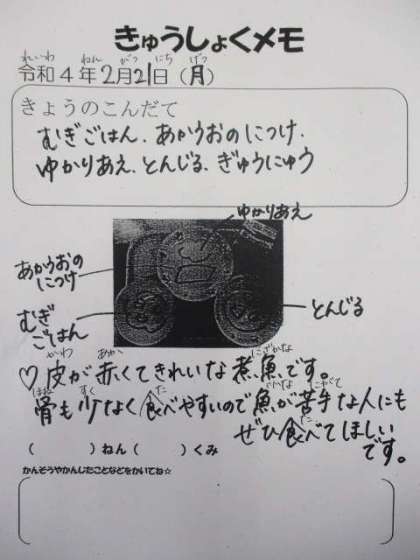 きゅうしょくメモ
れいわ ねん がつ にち げつ
令和4年2月21日(月)
きょうのこんだて
むぎごはん、あかうおのにつけ、
ゆかりあえ、とんじる、ぎゅうにゅう
ゆかりあえ
あかうおの
につけ
むぎ
ごはん
とんじる
かわ あか にざかな
♡皮が赤くてきれいな煮魚です。
ほね すく た さかな にがて
骨も少なく食べやすいので魚が苦手な人にも
た
ぜひ食べてほしい
です。
( )ねん( )くみ
かんそうやかんじたことなどをかいてね☆